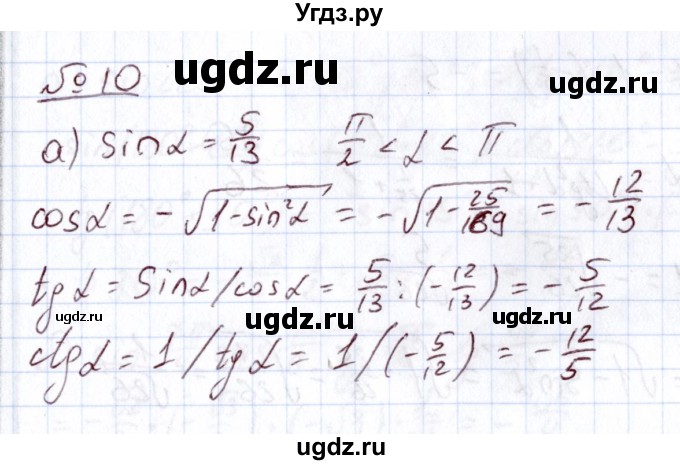 Угдз.ру
№10
ugdz.ru
а) sinα = 5/13   π/2 < α < π
cosα = -√(1-sin²α) = -√(1-25/169) = -12/13
tgα = sinα/cosα = 5/13 : (-12/13) = -5/12
ugdz.ru
ugdz.ru
ugdz.ru
ctgα = 1/tgα = 1/(-5/12) = -12/5
ugdz.ru
ugdz.ru